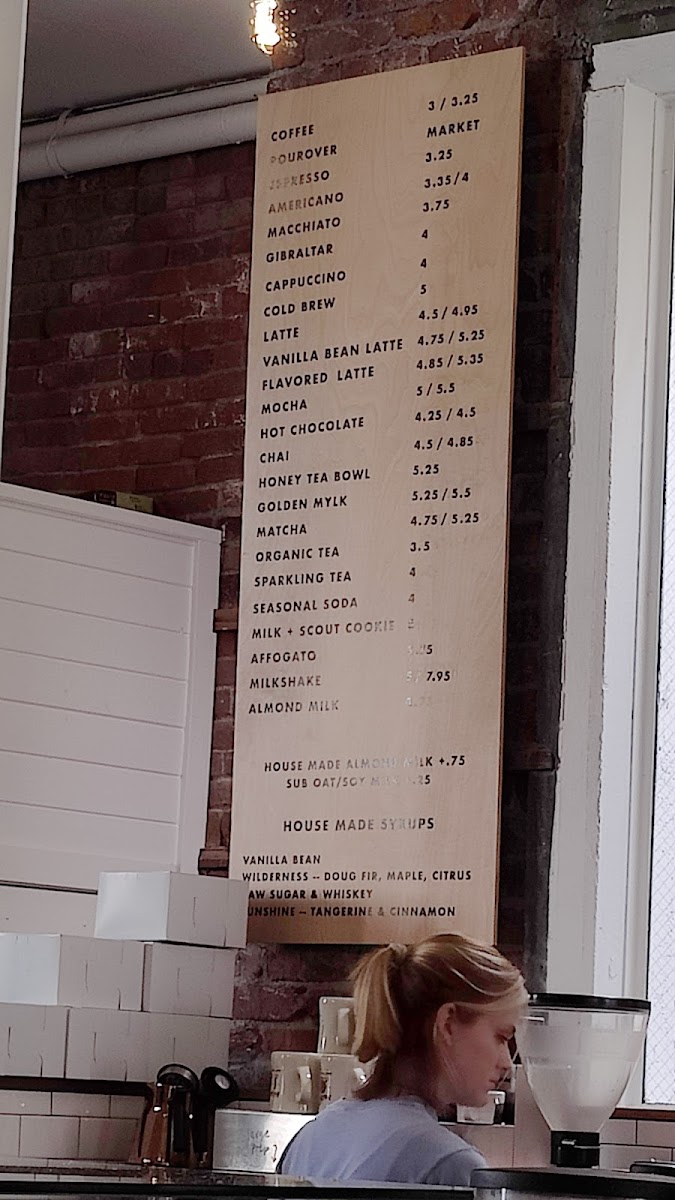 COFFEE 3 / 3.25
POUROVER MARKET
ESPRESSO 3.25
AMERICANO 3.35/4
MACCHIATO 3.75
GIBRALTAR 4
CAPPUCCINO 4
COLD BREW 5
LATTE 4.5 / 4.95
VANILLA BEAN LATTE 4.75 / 5.25
FLAVORED LATTE 4.85 / 5.35
MOCHA 5 / 5.5
HOT CHOCOLATE 4.25 / 4.5
CHAI 4.5 / 4.85
HONEY TEA BOWL 5.25
GOLDEN MYLK 5.25 / 5.5
MATCHA 4.75 / 5.25
ORGANIC TEA 3.5
SPARKLING TEA 4
SEASONAL SODA 4
MILK + SCOUT COOKIE
AFFOGATO
MILKSHAKE / 7.95
ALMOND MILK
HOUSE MADE ALMOND MILK +.75
SUB OAT/SOY MILK
HOUSE MADE SYRUPS
VANILLA BEAN
WILDERNESS -- DOUG FIR, MAPLE, CITRUS
RAW SUGAR & WHISKEY
SUNSHINE -- TANGERINE & CINNAMON